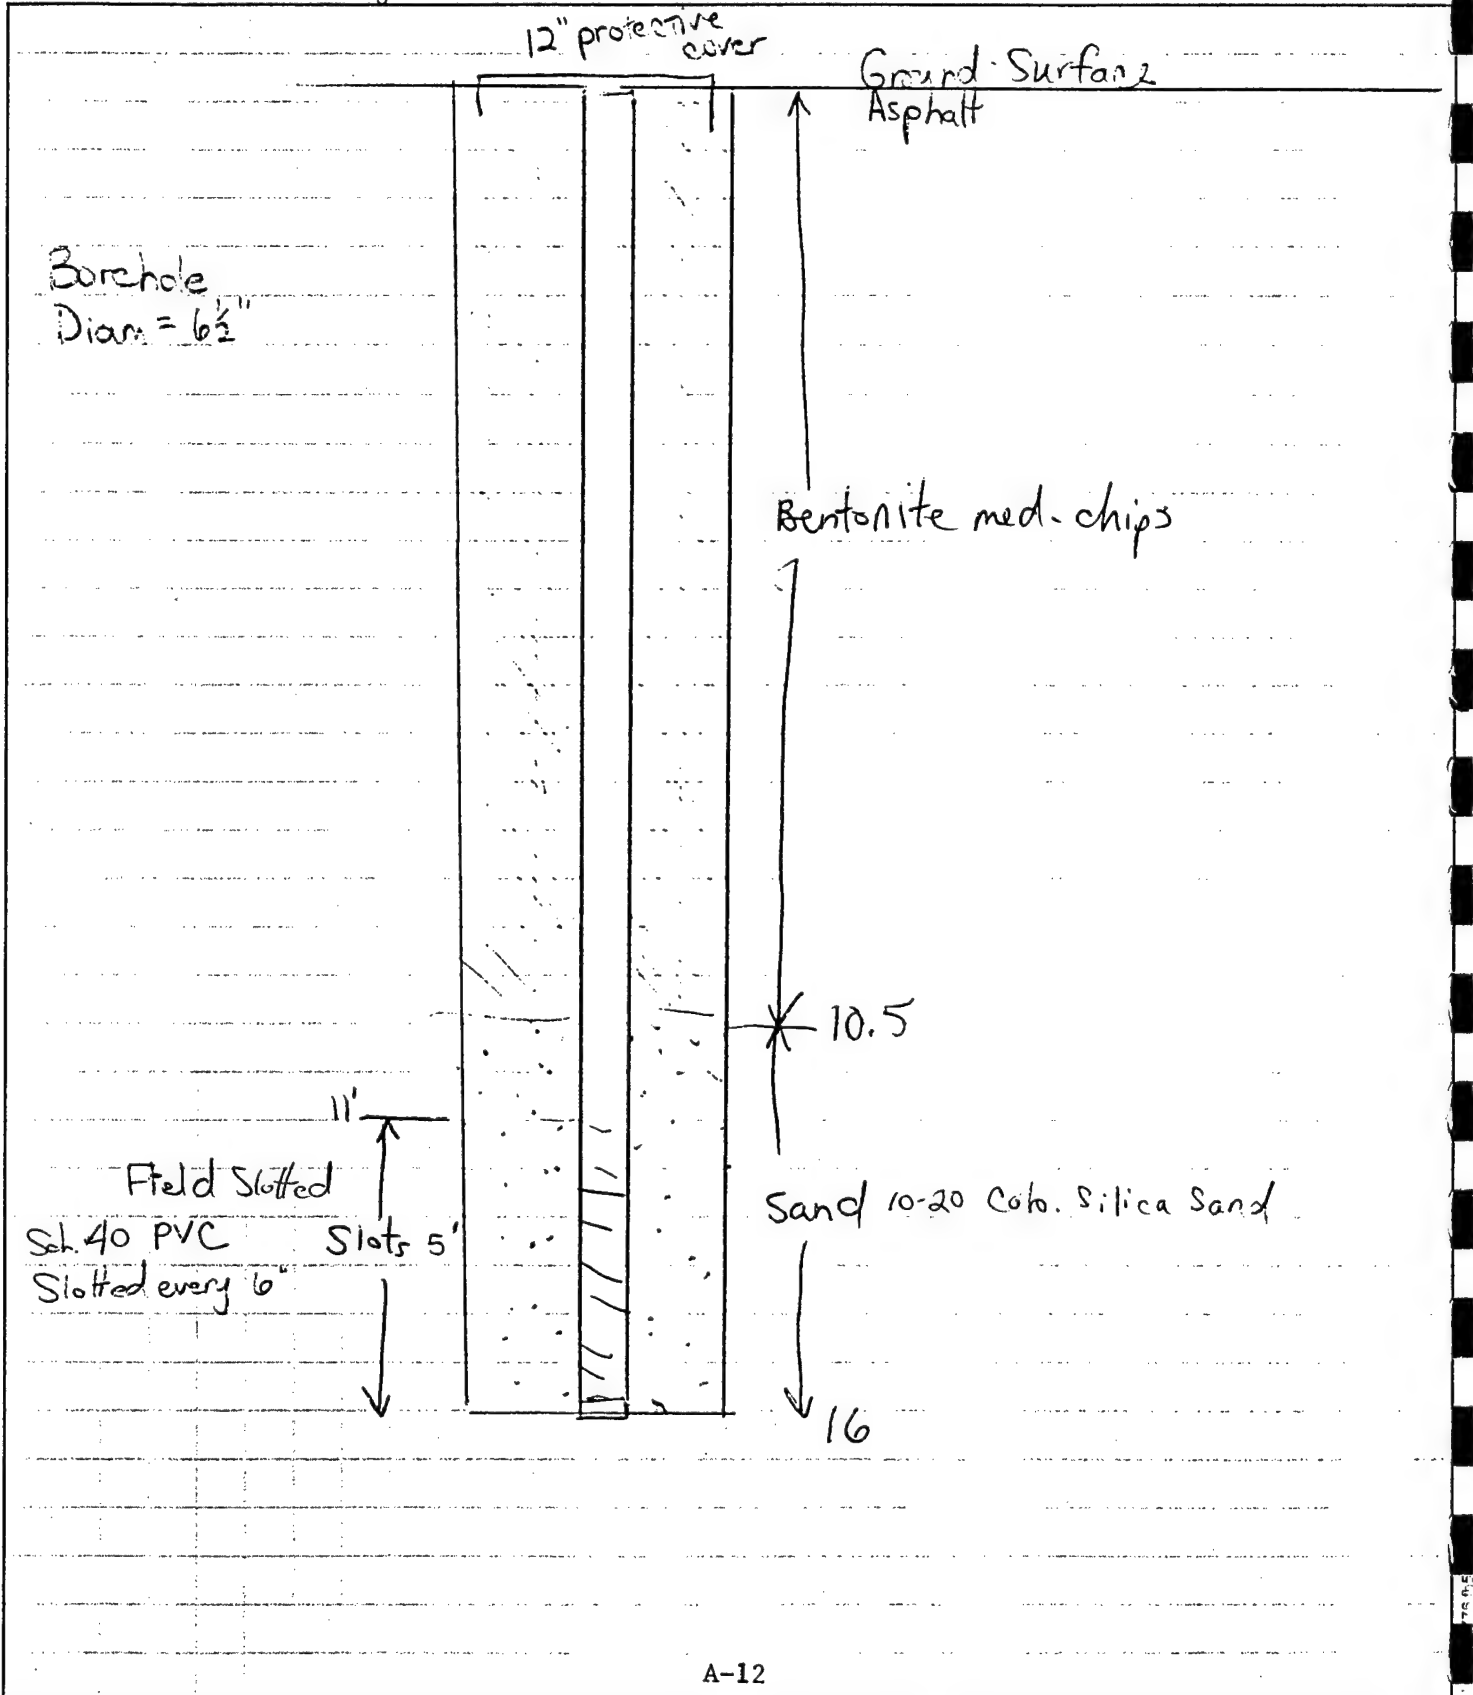 12" protective
cover
Ground Surface
Asphalt
Borehole
Diam = 6½"
Bentonite med. chips
10.5
11'
Field Slotted
Sch. 40 PVC Slots 5'
Slotted every 6"
Sand 10-20 Colo. Silica Sand
16
A-12